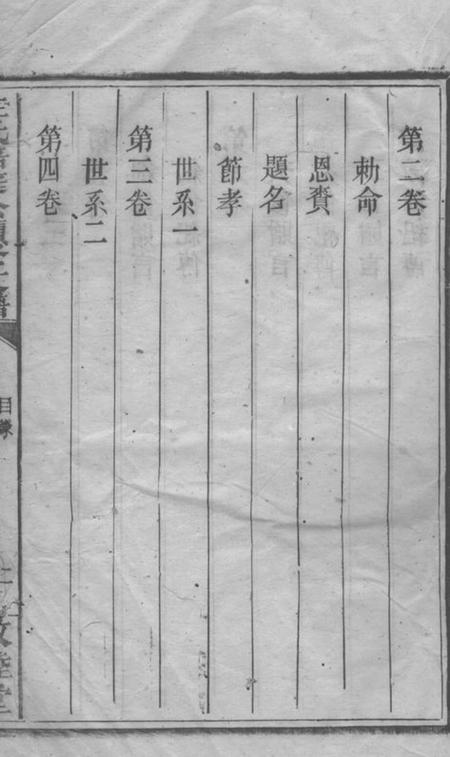 第二卷
勅命
恩賚
題名
節孝
世系一
第三卷
世系二
第四卷
目錄
二
敦睦堂